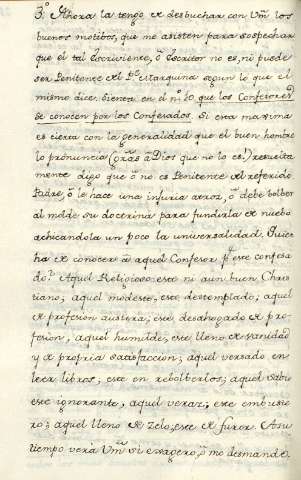 3.º Ahora la tengo de desbuchar con Vm. los
buenos motibos, que me asisten para sospechar
que el tal Escriviente, ò Escritor no es, ni puede
ser Penitente del P.e Marquina segun lo que el
mismo dice. Sienta en el n.º 10 que los Confesores
se conocen por los Confesados. Si esta maxima
es cierta con la generalidad que el buen hombre
lo pronunció (gràs à Dios que no lo es!) resuelta
mente digo que ò no es Penitente del referido
Padre, ò le hace una injuria atroz, ò debe bolber
al molde su doctrina para fundirla de nuebo
achicandola un poco la universalidad. Quien
ha de conocer à aquel Confesor p.r este confesa
do? Aquel Religioso: este ni aun buen Chris
tiano; aquel modesto, este destemplado; aquel
de profesion austera; este desahogado de pro-
fesion, aquel humilde, este lleno de vanidad
y de propria satisfaccion; aquel versado en
leer libros, este en rebolberlos; aquel sabio
este ignorante, aquel veraz, este embuste
ro; aquel lleno de zelo, este de furor. A su
tiempo verà Vm. si exagero, ò me desmando.